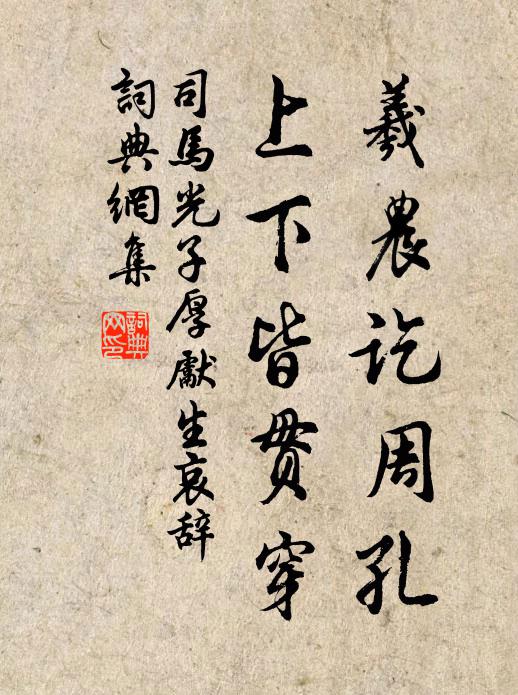 羲農訖周孔
上下皆貫穿
司馬光子厚獻生哀辞
詞典網集
詞典
网印